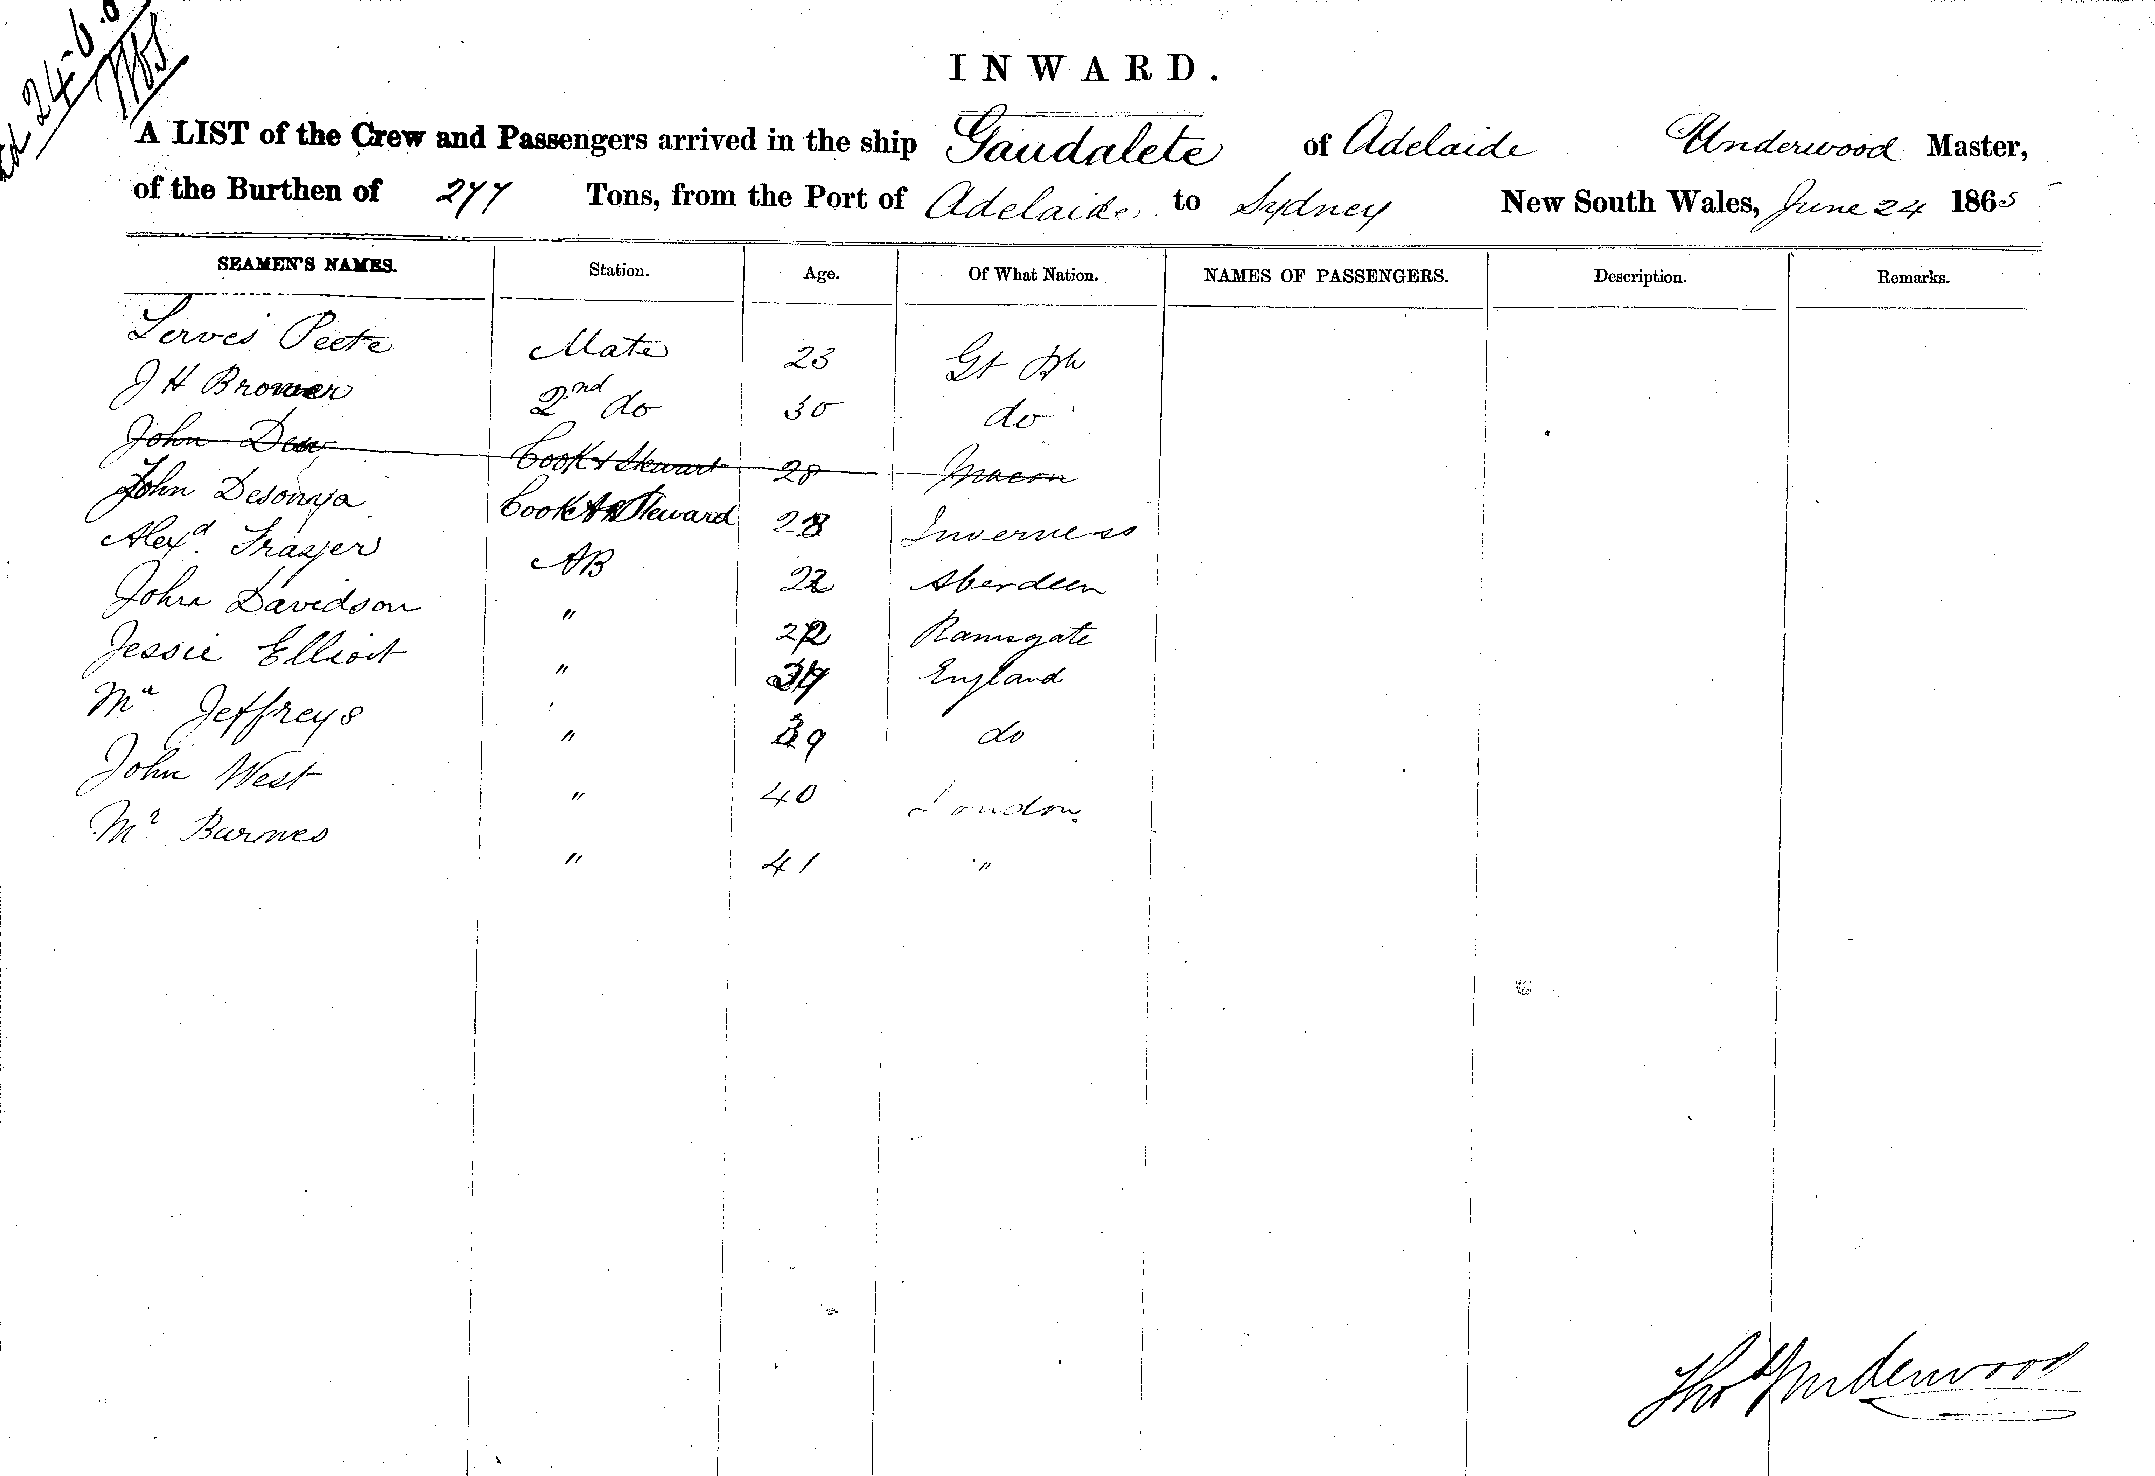 24-6.
INWARD.
A LIST of the Crew and Passengers arrived in the ship Gaudalete of Adelaide Underwood Master,
of the Burthen of 277 Tons, from the Port of Adelaide to Sydney New South Wales, June 24 1865
SEAMEN'S NAMES. Station. Age. Of What Nation. NAMES OF PASSENGERS. Description. Remarks.
Peete Mate 23 Gt Bh
J H Brower 2nd do 30 do
John Cook & Stewart 28
John Desonya Cook & Steward 28 Inverness
Alexd. Frasjer AB 22 Aberdeen
John Davidson " 22 Ramsgate
Jessie Elliott " England
Jeffreys " 39 do
John West " 40 London
Mr Barnes " 41 "
Thos Underwood